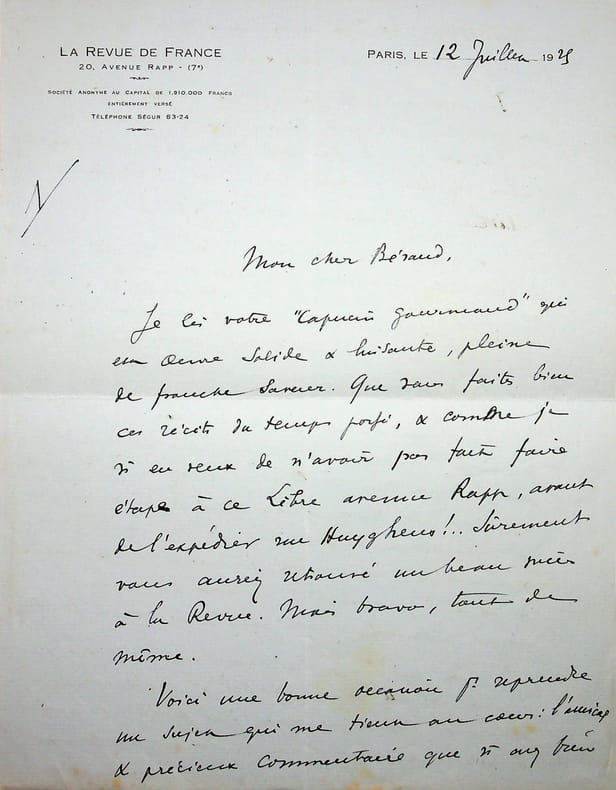 LA REVUE DE FRANCE
20, AVENUE RAPP - (7e)
SOCIÉTÉ ANONYME AU CAPITAL DE 1.910.000 FRANCS
ENTIÈREMENT VERSÉ
TÉLÉPHONE SÉGUR 63-24
PARIS, LE 12 Juillet 1925
Mon cher Béraud,
Je lis votre "Capucin gourmand" qui
est œuvre solide & luisante, pleine
de franche saveur. Que vous faites bien
ces récits du temps passé, & comme je
vs en veux de n'avoir pas fait faire
étape à ce Libre avenue Rapp, avant
de l'expédier rue Huyghens!.. Sûrement
vous auriez retrouvé un beau succès
à la Revue. Mais bravo, tout de
même.
Voici une bonne occasion pr reprendre
un sujet qui me tient au cœur: l'amical
& précieux commentaire que vs avez bien